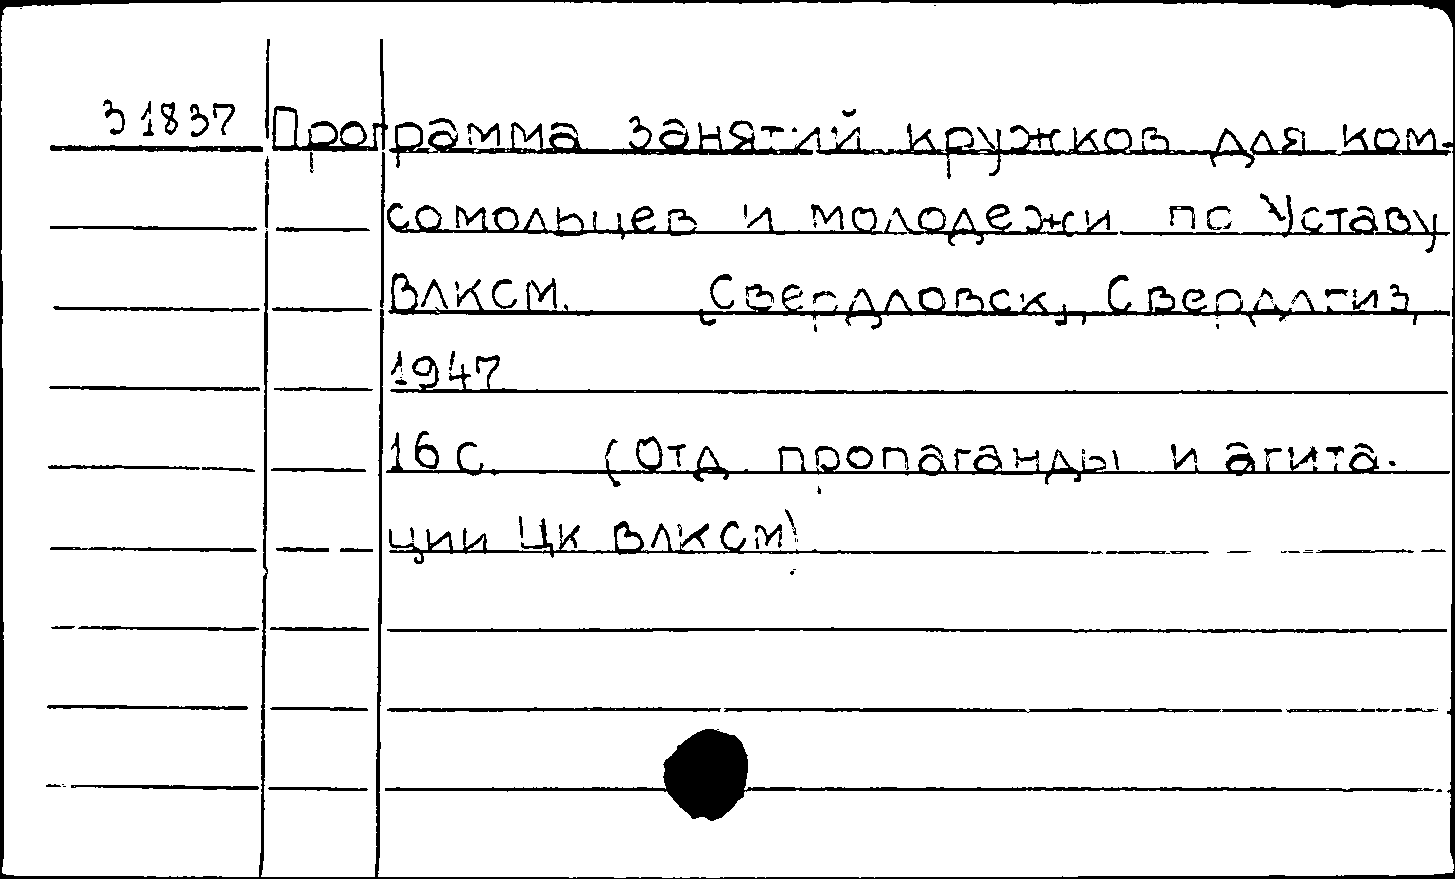 З 1837 Программа занятий кружков для ком-
сомольцев и молодежи по Уставу
ВЛКСМ. [Свердловск], Свердлгиз,
1947
16 с. (Отд. пропаганды и агита-
ции ЦК ВЛКСМ)